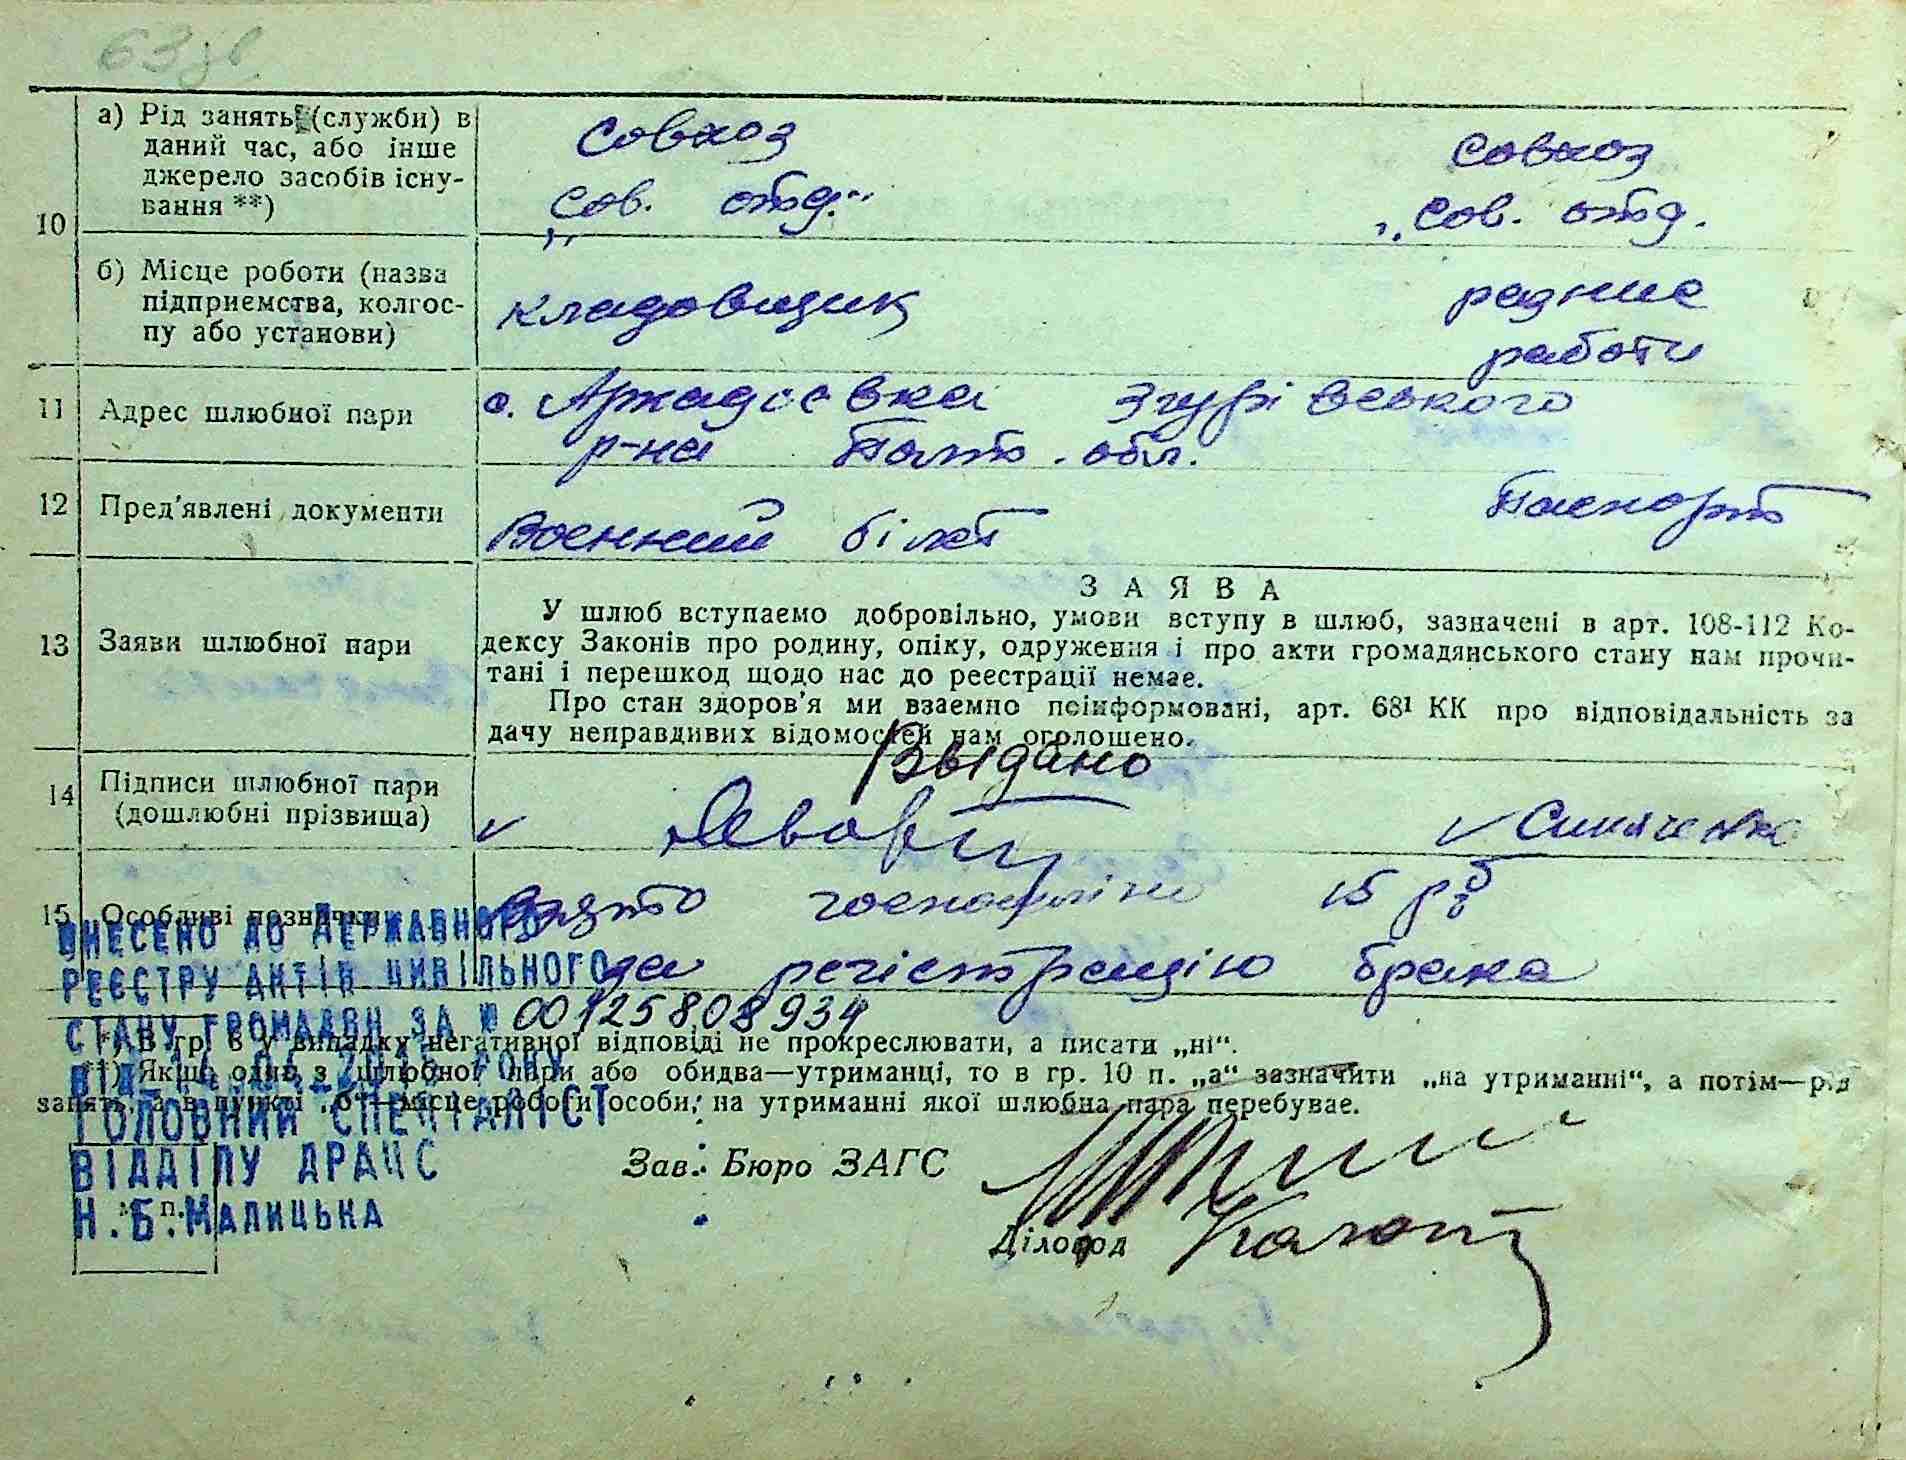 10
а) Рід занять (служби) в
даний час, або інше
джерело засобів існу-
вання **)
совхоз
„Сов. отд.“
совхоз
„Сов. отд.
б) Місце роботи (назва
підприємства, колгос-
пу або установи)
кладовщик
работи
11
Адрес шлюбної пари
с. Аркадовка Згурівського
р-на Полт. обл.
12
Пред'явлені документи
Военний білет
Паспорт
13
Заяви шлюбної пари
ЗАЯВА
У шлюб вступаємо добровільно, умови вступу в шлюб, зазначені в арт. 108-112 Ко-
дексу Законів про родину, опіку, одруження і про акти громадянського стану нам прочи-
тані і перешкод щодо нас до реєстрації немає.
Про стан здоров'я ми взаємно поінформовані, арт. 68¹ КК про відповідальність за
дачу неправдивих відомостей нам оголошено.
Выдано
14
Підписи шлюбної пари
(дошлюбні прізвища)
15
Особливі позначки
Взято 15 р
за регістрацію брака
ВНЕСЕНО ДО ДЕРЖАВНОГО
РЕЄСТРУ АКТІВ ЦИВІЛЬНОГО
СТАНУ ГРОМАДЯН ЗА № 00125808934
*) В гр. 8 у випадку негативної відповіді не прокреслювати, а писати „ні“.
**) Якщо один з шлюбної пари або обидва—утриманці, то в гр. 10 п. „а“ зазначити „на утриманні“, а потім—рід
занять, а в пункті „б“—місце роботи особи, на утриманні якої шлюбна пара перебуває.
ГОЛОВНИЙ СПЕЦІАЛІСТ
ВІДДІЛУ ДРАЦС
Н.Б.МАЛИЦЬКА
М. П.
Зав. Бюро ЗАГС
Діловод